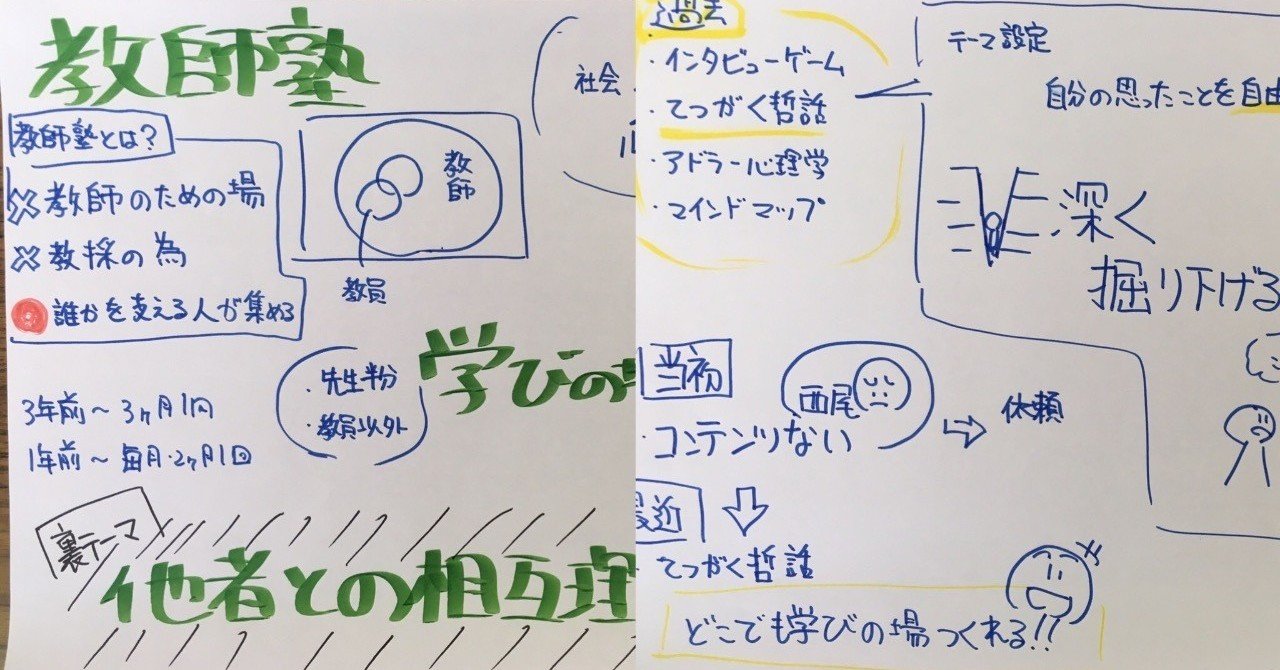 教師塾
教師塾とは?
教師のための場
教採の為
誰かを支える人が集める
教師
教員
社会
3年前〜3ヶ月1回
1年前〜毎月・2ヶ月1回
・先生半分
・教員以外
学びの
裏テーマ
他者との相互理
過去
・インタビューゲーム
・てつがく哲話
・アドラー心理学
・マインドマップ
テーマ設定
自分の思ったことを自由
深く
掘り下げる
当初
・コンテンツない
西尾
依頼
最近
てつがく哲話
どこでも学びの場つくれる!!